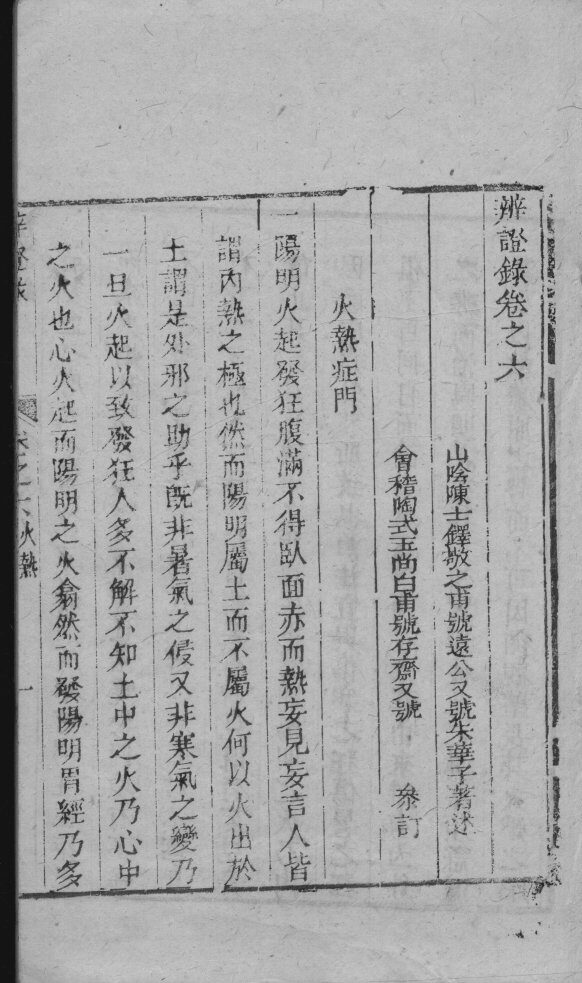 辨證錄卷之六
山陰陳士鐸敬之甫號遠公又號朱華子著述
會稽陶式玉尚白甫號存齋又號　叅訂
火熱症門
一陽明火起發狂腹滿不得臥面赤而熱妄見妄言人皆
謂內熱之極也然而陽明屬土而不屬火何以火出於
土謂是外邪之助乎既非暑氣之侵又非寒氣之變乃
一旦火起以致發狂人多不解不知土中之火乃心中
之火也心火起而陽明之火翕然而發陽明胃經乃多
卷之六火熱　一